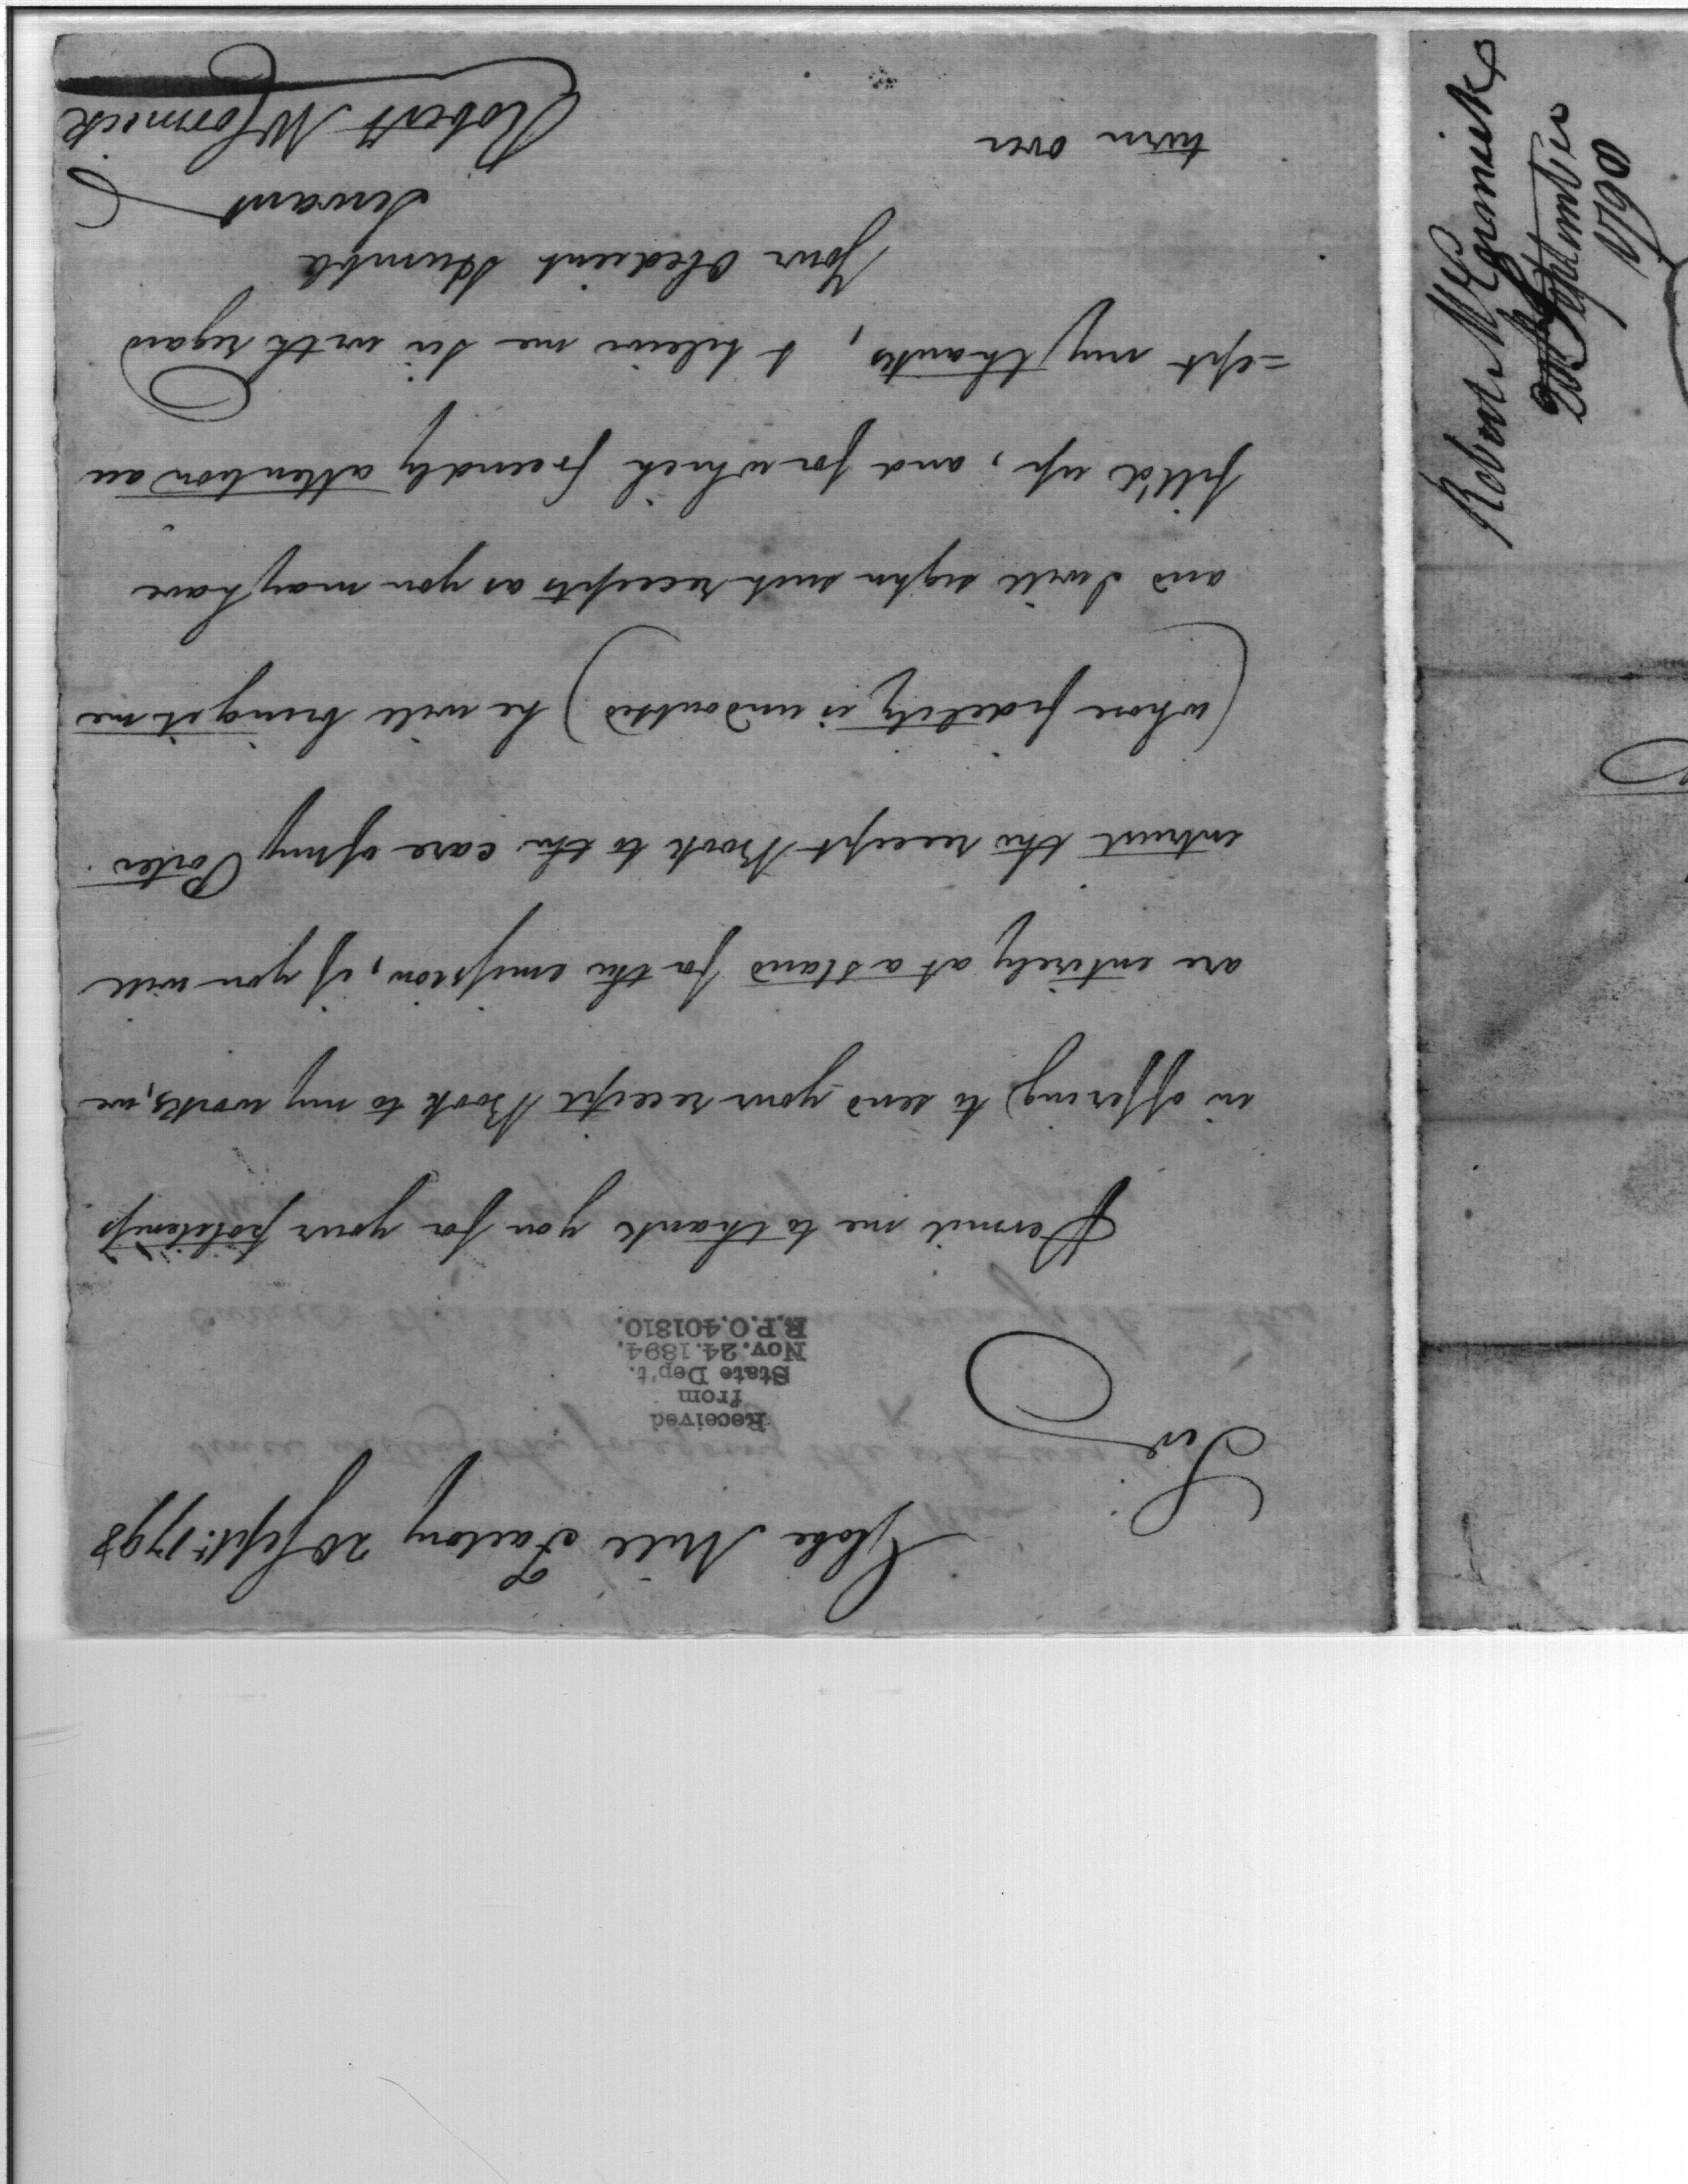 Globe Mill Factory 20 Sept: 1798
Sir
Received
from
State Dep't.
Nov. 24. 1894.
R.P.O. 401810.
Permit me to thank you for your politeness
in offering to send your receipt Book to my works, we
are entirely at a stand for the emission, if you will
entrust the receipt Book to the care of my Porter
(whose fidelity is undoubted) he will bring it me
and I will sighn such receipts as you may have
fill'd up, and for which freindly attention acc
=ept my thanks, & beleive me Sir with regard
Your Obedient Humble
Servant
Robert McCormick
turn over
Robert McCormick
20th September
1798